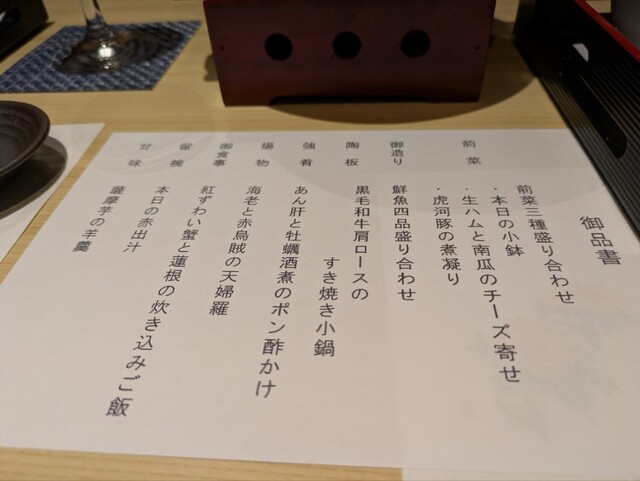 御品書
前菜
前菜三種盛り合わせ
・本日の小鉢
・生ハムと南瓜のチーズ寄せ
・虎河豚の煮凝り
御造り
鮮魚四品盛り合わせ
陶板
黒毛和牛肩ロースの
すき焼き小鍋
強肴
あん肝と牡蠣酒煮のポン酢かけ
揚物
海老と赤烏賊の天婦羅
御食事
紅ずわい蟹と蓮根の炊き込みご飯
留椀
本日の赤出汁
甘味
薩摩芋の羊羹